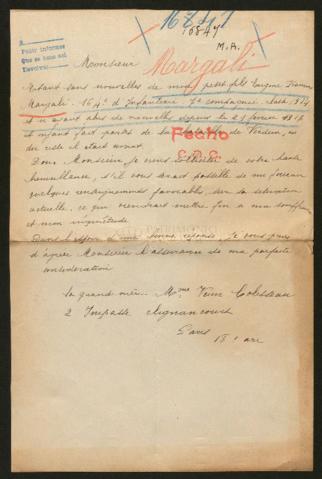 16847
16847
M.A.
Pour informer
Monsieur
Margali
Etant sans nouvelles de mon petit fils Eugène
Margali 164e d'Infanterie 7e compagnie
et n'ayant plus de nouvelles depuis le 21 février 1916
et ayant fait partie de la de Verdun, ou
du reste il était
Fecho
Donc Monsieur je viens de votre haute
bienveillance, s'il vous serait possible de me fournir
quelques renseignements favorables sur sa situation
actuelle, ce qui viendrait mettre fin a ma souffrance
et mon inquiétude.
Dans l'espoir d'une bonne réponse, je vous prie
d'agréer Monsieur l'assurance de ma parfaite
considération
sa grand mère. Mme Veuve
2 Impasse Clignancourt
Paris
18e arr